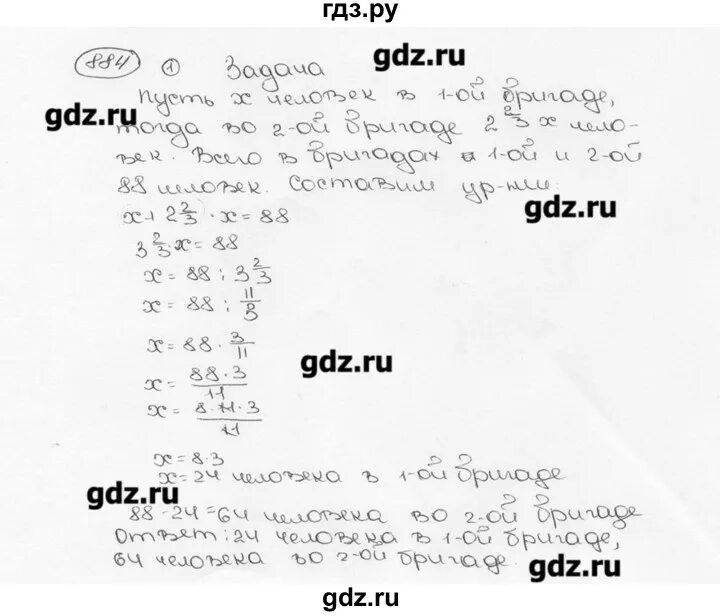 гдз.ру
884 1 Задача
gdz.ru
Пусть x человек в 1-ой бригаде,
gdz.ru
тогда во 2-ой бригаде 2 2/3 x чело-
век. Всего в бригадах 1-ой и 2-ой
88 человек. Составим ур-нии:
gdz.ru
x + 2 2/3 · x = 88
3 2/3 · x = 88
x = 88 : 3 2/3
x = 88 : 11/3
x = 88 · 3/11
gdz.ru
x = 88·3/11
x = 8·11·3/11
x = 8·3
x = 24 человека в 1-ой бригаде
gdz.ru
88 - 24 = 64 человека во 2-ой бригаде
Ответ: 24 человека в 1-ой бригаде,
64 человека во 2-ой бригаде.
gdz.ru
gdz.ru